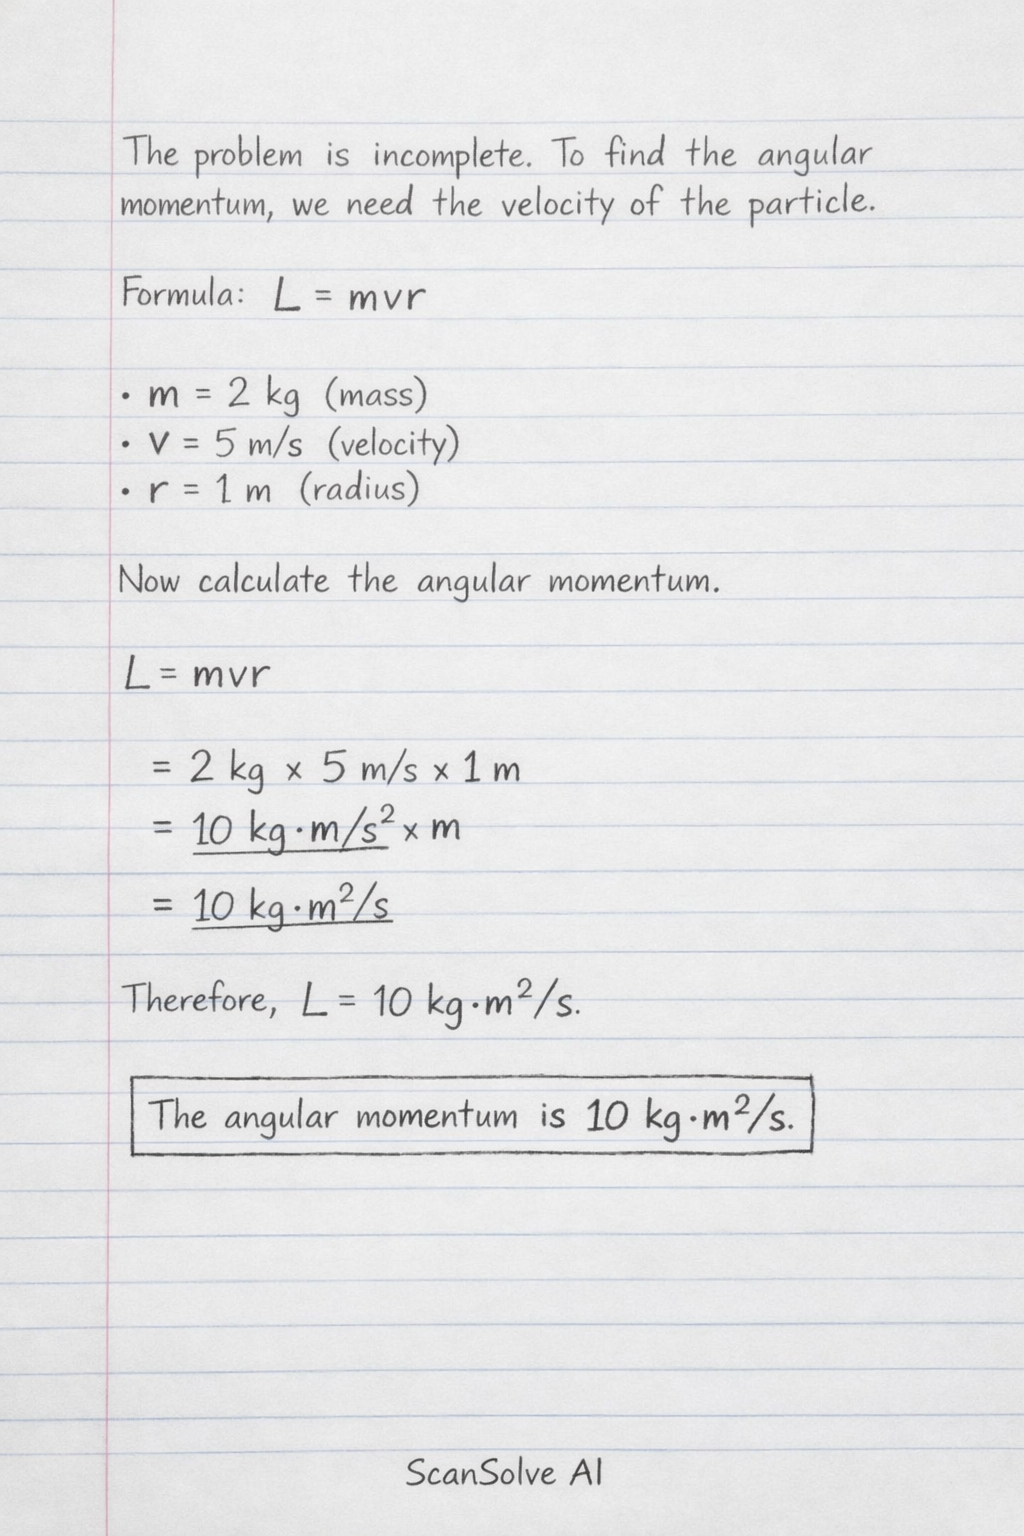 The problem is incomplete. To find the angular
momentum, we need the velocity of the particle.
Formula: L = mvr
• m = 2 kg (mass)
• v = 5 m/s (velocity)
• r = 1 m (radius)
Now calculate the angular momentum.
L = mvr
= 2 kg × 5 m/s × 1 m
= 10 kg·m/s² × m
= 10 kg·m²/s
Therefore, L = 10 kg·m²/s.
The angular momentum is 10 kg·m²/s.
ScanSolve AI